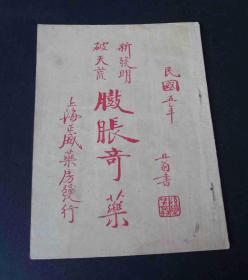 民國五年
丹翁書
新發明
破天荒
臌脹奇藥
上海正威藥房發行